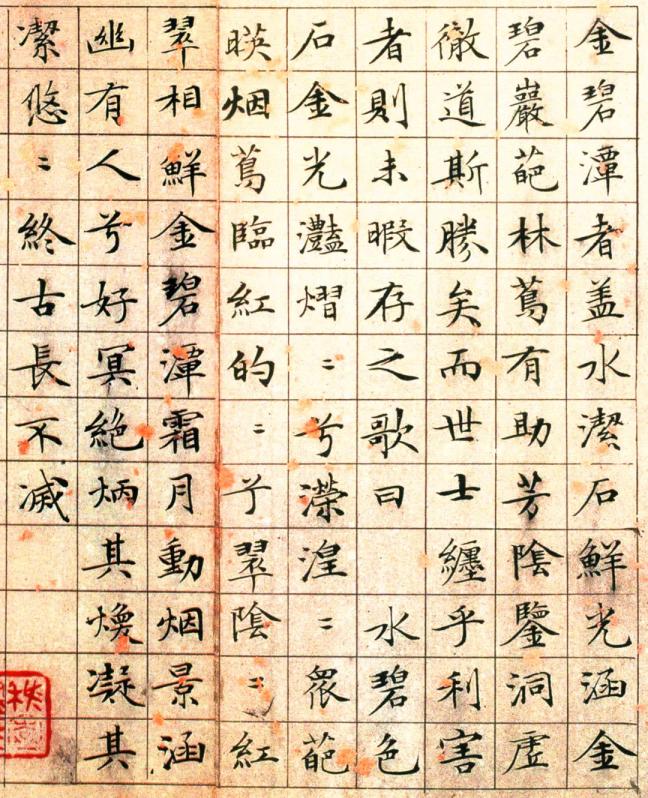 金碧潭者盖水潔石鮮光涵金
碧巖葩林蔦有助芳陰鑒洞虛
徹道斯勝矣而世士纏乎利害
者則未暇存之歌曰水碧色
石金光灩熠〻兮濴湟〻衆葩
暎烟蔦臨紅的〻兮翠陰〻紅
翠相鮮金碧潭霜月動烟景涵
幽有人兮好冥絕炳其煥凝其
潔悠〻終古長不滅